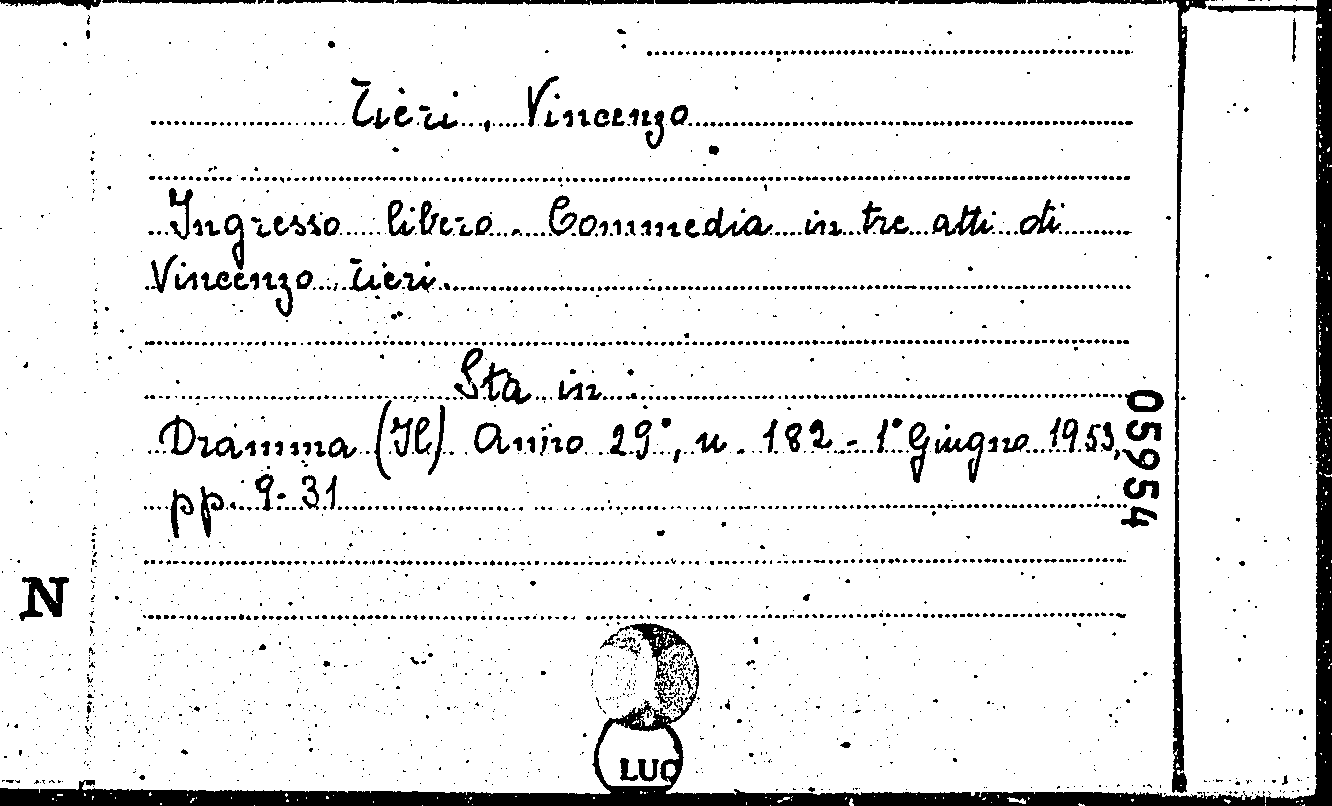 Tieri, Vincenzo
Ingresso libero. Commedia in tre atti di
Vincenzo Tieri.
Sta in:
Dramma (Il) Anno 29°, n. 182 - 1° Giugno 1953,
pp. 9-31
05954
N
LUC